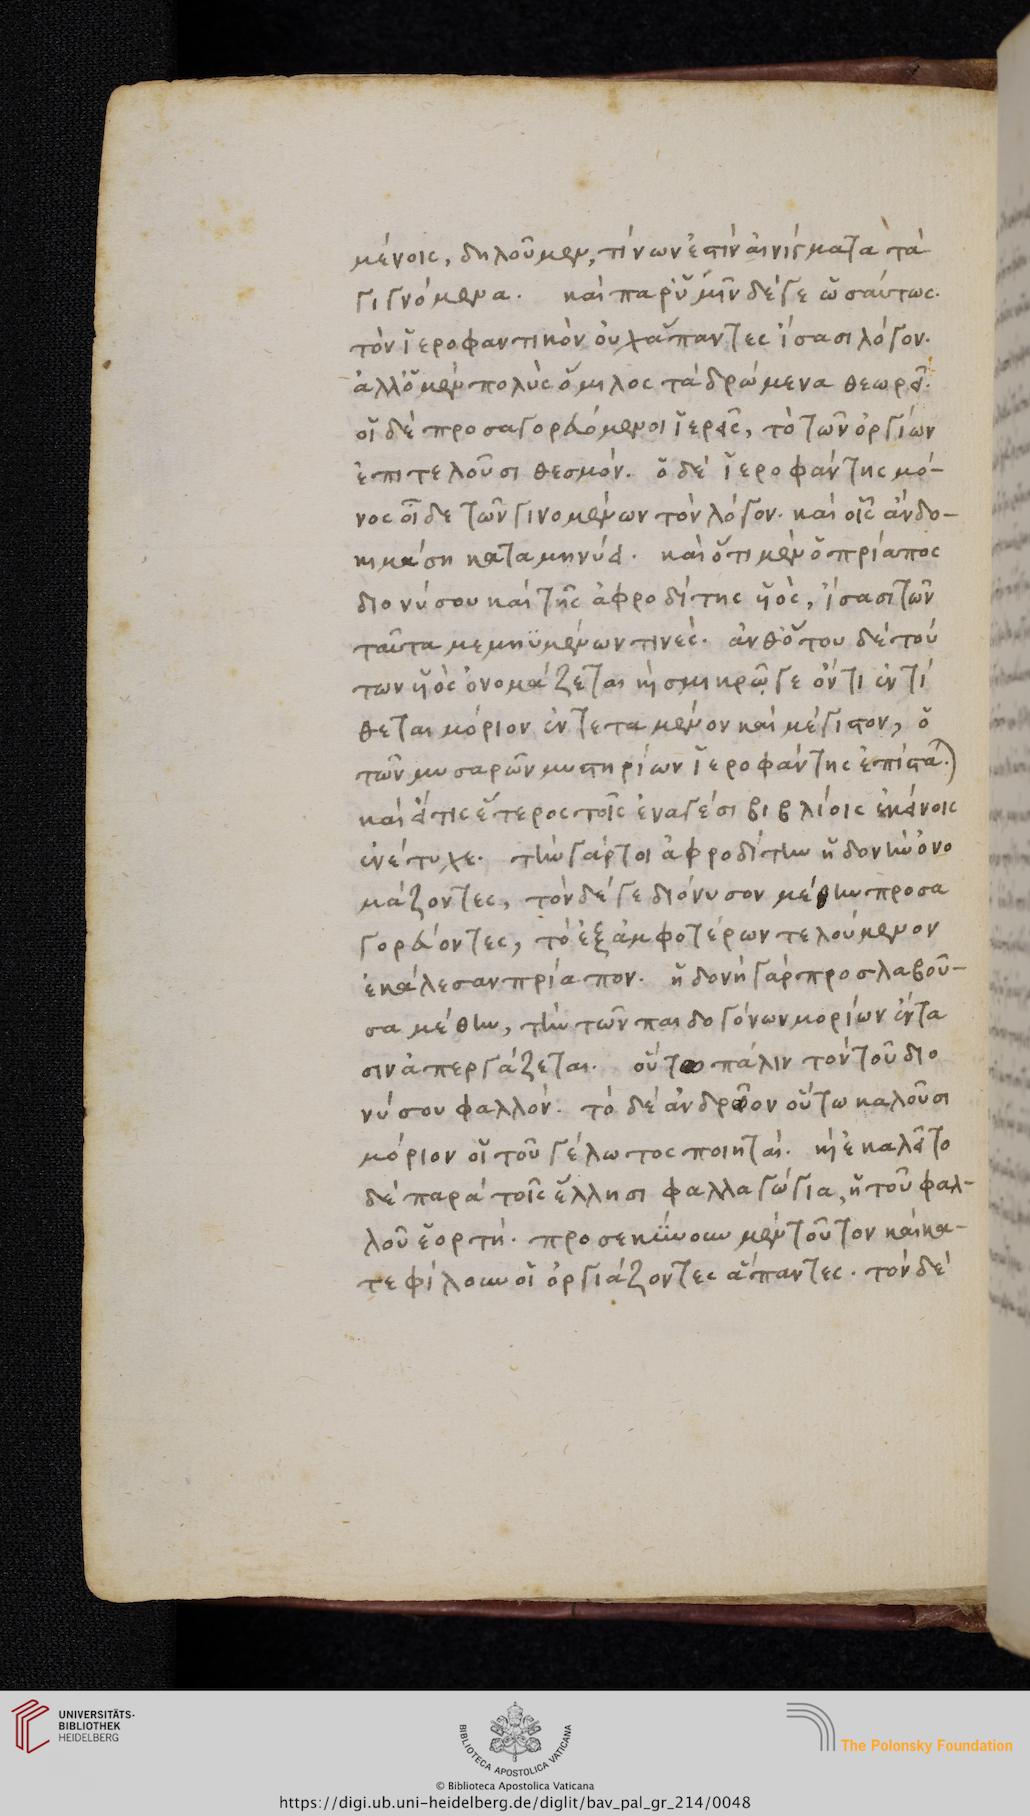 μένοις, δηλοῦμεν, τίνων ἐστὶν αἰνίγματα τὰ
γιγνόμενα. καὶ παρ᾽ ὑμῖν δέ γε ὡσαύτως.
τὸν ἱεροφαντικὸν οὐχ ἅπαντες ἴσασι λόγον.
ἀλλ᾽ ὁ μὲν πολὺς ὅμιλος τὰ δρώμενα θεωρεῖ.
οἱ δὲ προσαγορευόμενοι ἱερεῖς, τὸ τῶν ὀργίων
ἐπιτελοῦσι θεσμόν. ὁ δὲ ἱεροφάντης μό-
νος οἶδε τῶν γινομένων τὸν λόγον. καὶ οἷς ἂν δο-
κιμάση καταμηνύει. καὶ ὅτι μὲν ὁ πρίαπος
διονύσου καὶ τῆς ἀφροδίτης υἱὸς, ἴσασι τῶν
ταῦτα μεμυημένων τινές. ἀνθ᾽ ὅτου δὲ τού
των υἱὸς ὀνομάζεται καὶ σμικρῷ γε ὄντι ἐντί
θεται μόριον ἐντεταμένον καὶ μέγιστον, ὁ
τῶν μυσαρῶν μυστηρίων ἱεροφάντης ἐπίσταται.
καὶ εἴ τις ἕτερος τοῖς ἐναγέσι βιβλίοις ἐκείνοις
ἐνέτυχε. τὴν γάρ τοι ἀφροδίτην ἡδονὴν ὀνο
μάζοντες, τὸν δέ γε διόνυσον μέθην προσα
γορεύοντες, τὸ ἐξ ἀμφοτέρων τελούμενον
ἐκάλεσαν πρίαπον. ἡδονὴ γὰρ προσλαβοῦ-
σα μέθην, τὴν τῶν παιδογόνων μορίων ἔντα
σιν ἀπεργάζεται. οὕτω πάλιν τὸν τοῦ διο
νύσου φαλλόν. τὸ δὲ ἀνδρῷον οὕτω καλοῦσι
μόριον οἱ τοῦ γέλωτος ποιηταί. καὶ ἐκαλεῖτο
δὲ παρὰ τοῖς ἕλλησι φαλλαγώγια, ἡ τοῦ φαλ-
λοῦ ἑορτή. προσεκύνουν μὲν τοῦτον καὶ κα-
τεφίλουν οἱ ὀργιάζοντες ἅπαντες. τὸν δὲ
UNIVERSITÄTS-
BIBLIOTHEK
HEIDELBERG
BIBLIOTECA APOSTOLICA VATICANA
The Polonsky Foundation
© Biblioteca Apostolica Vaticana
https://digi.ub.uni-heidelberg.de/diglit/bav_pal_gr_214/0048